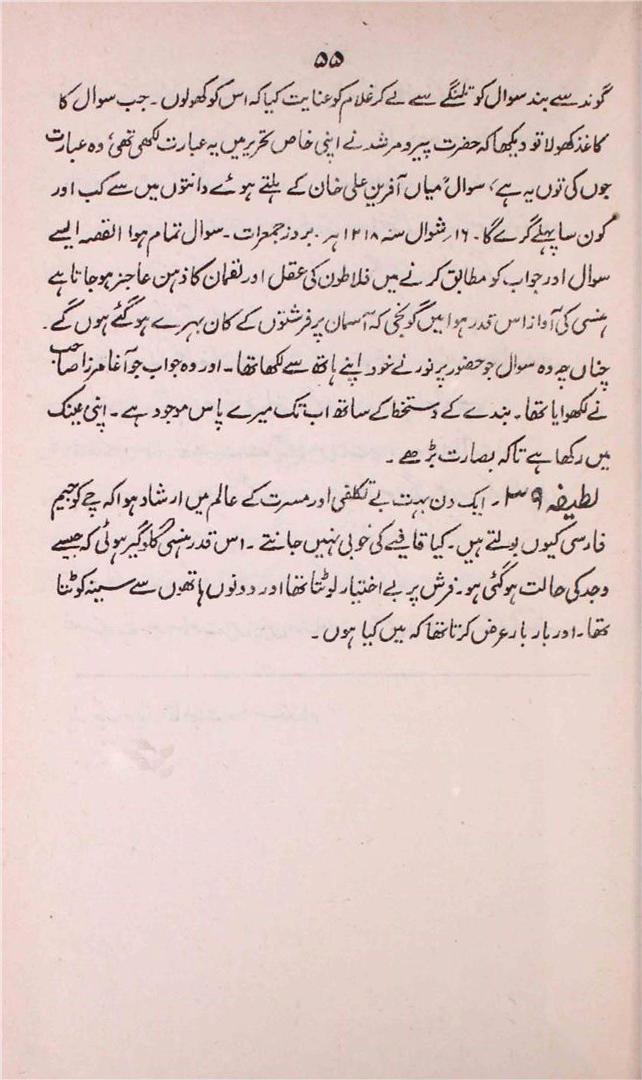 ۵۵
گوند سے بند سوال کو تلنگے سے لے کر غلام کو عنایت کیا کہ اس کو کھولوں۔ جب سوال کا
کاغذ کھولا تو دیکھا کہ حضرت پیر و مرشد نے اپنی خاص تحریر میں یہ عبارت لکھی تھی، وہ عبارت
جوں کی توں یہ ہے، سوال، میاں آفریں علی خان کے ہلتے ہوئے دانتوں میں سے کب اور
کون سا پہلے گرے گا۔ ۱۶ر شوال سنہ ۱۲۱۸ ہر۔ بروز جمعرات۔ سوال تمام ہوا القصہ ایسے
سوال اور جواب کو مطابق کرنے میں فلاطون کی عقل اور لقمان کا ذہن عاجز ہو جاتا ہے
ہنسی کی آواز اس قدر ہوا میں گونجی کہ آسمان پر فرشتوں کے کان بہرے ہو گئے ہوں گے۔
چناں چہ وہ سوال جو حضور پر نور نے خود اپنے ہاتھ سے لکھا تھا۔ اور وہ جواب جو آغا مرزا صاحب
نے لکھوایا تھا۔ بندے کے دستخط کے ساتھ اب تک میرے پاس موجود ہے۔ اپنی عینک
میں رکھا ہے تاکہ بصارت بڑھے۔
لطیفہ ۳۹۔ ایک دن بہت بے تکلفی اور مسرت کے عالم میں ارشاد ہوا کہ چے کو جیم
فارسی کیوں بولتے ہیں۔ کیا قافیے کی خوبی نہیں جانتے۔ اس قدر ہنسی گلوگیر ہوئی کہ جیسے
وجد کی حالت ہو گئی ہو۔ فرش پر بے اختیار لوٹتا تھا اور دونوں ہاتھوں سے سینہ کوٹتا
تھا۔ اور بار بار عرض کرتا تھا کہ میں کیا ہوں۔